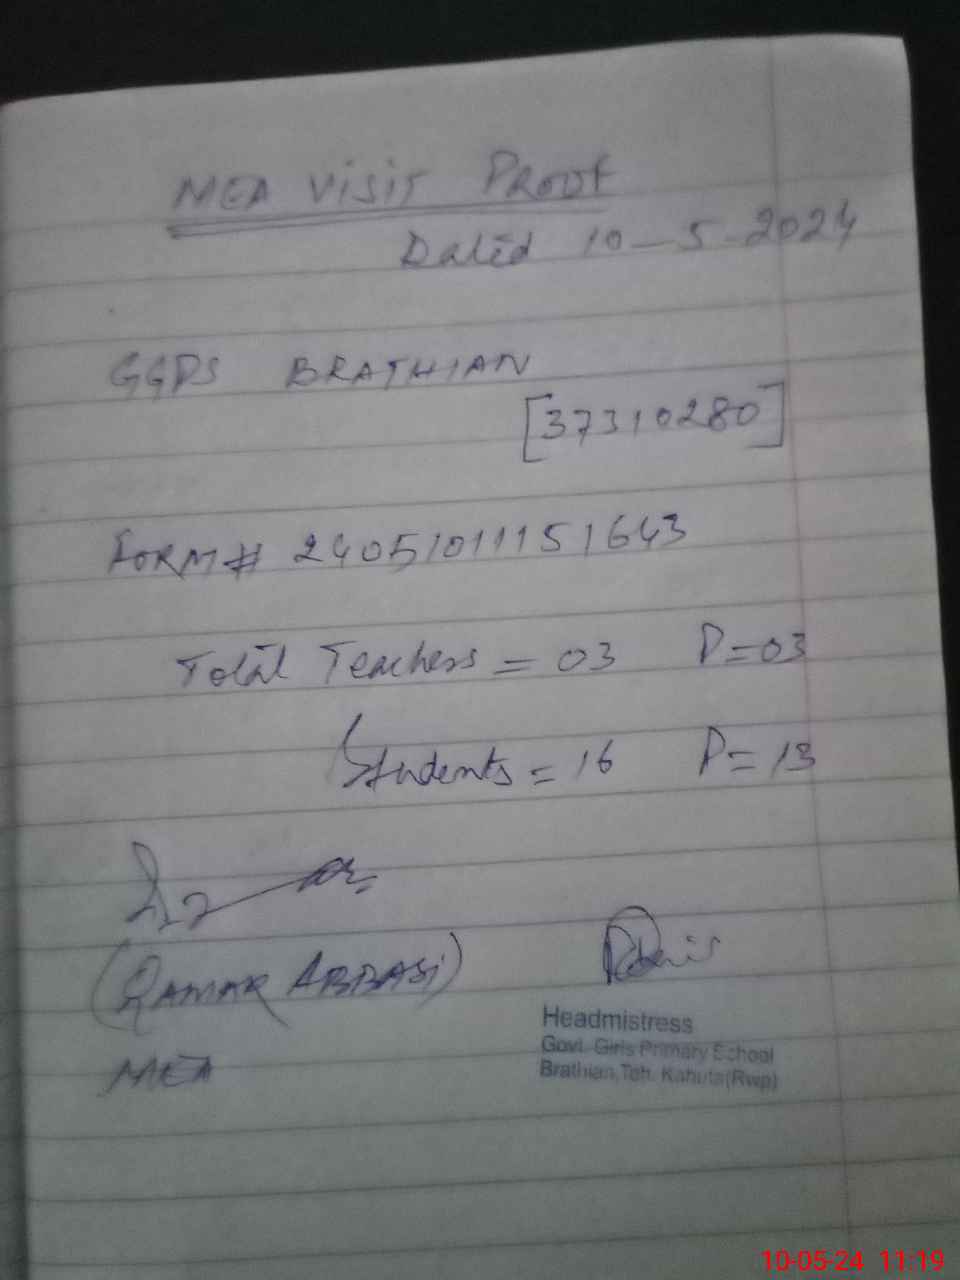 MEA VISIT PROOF
Dated 10-5-2024
GGPS BRATHIAN
[37310280]
FORM# 24051011151643
Total Teachers = 03 P=03
Students = 16 P=13
(QAMAR ABBASI)
MEA
Headmistress
Govt. Girls Primary School
Brathian,Teh. Kahuta(Rwp)
10-05-24 11:19